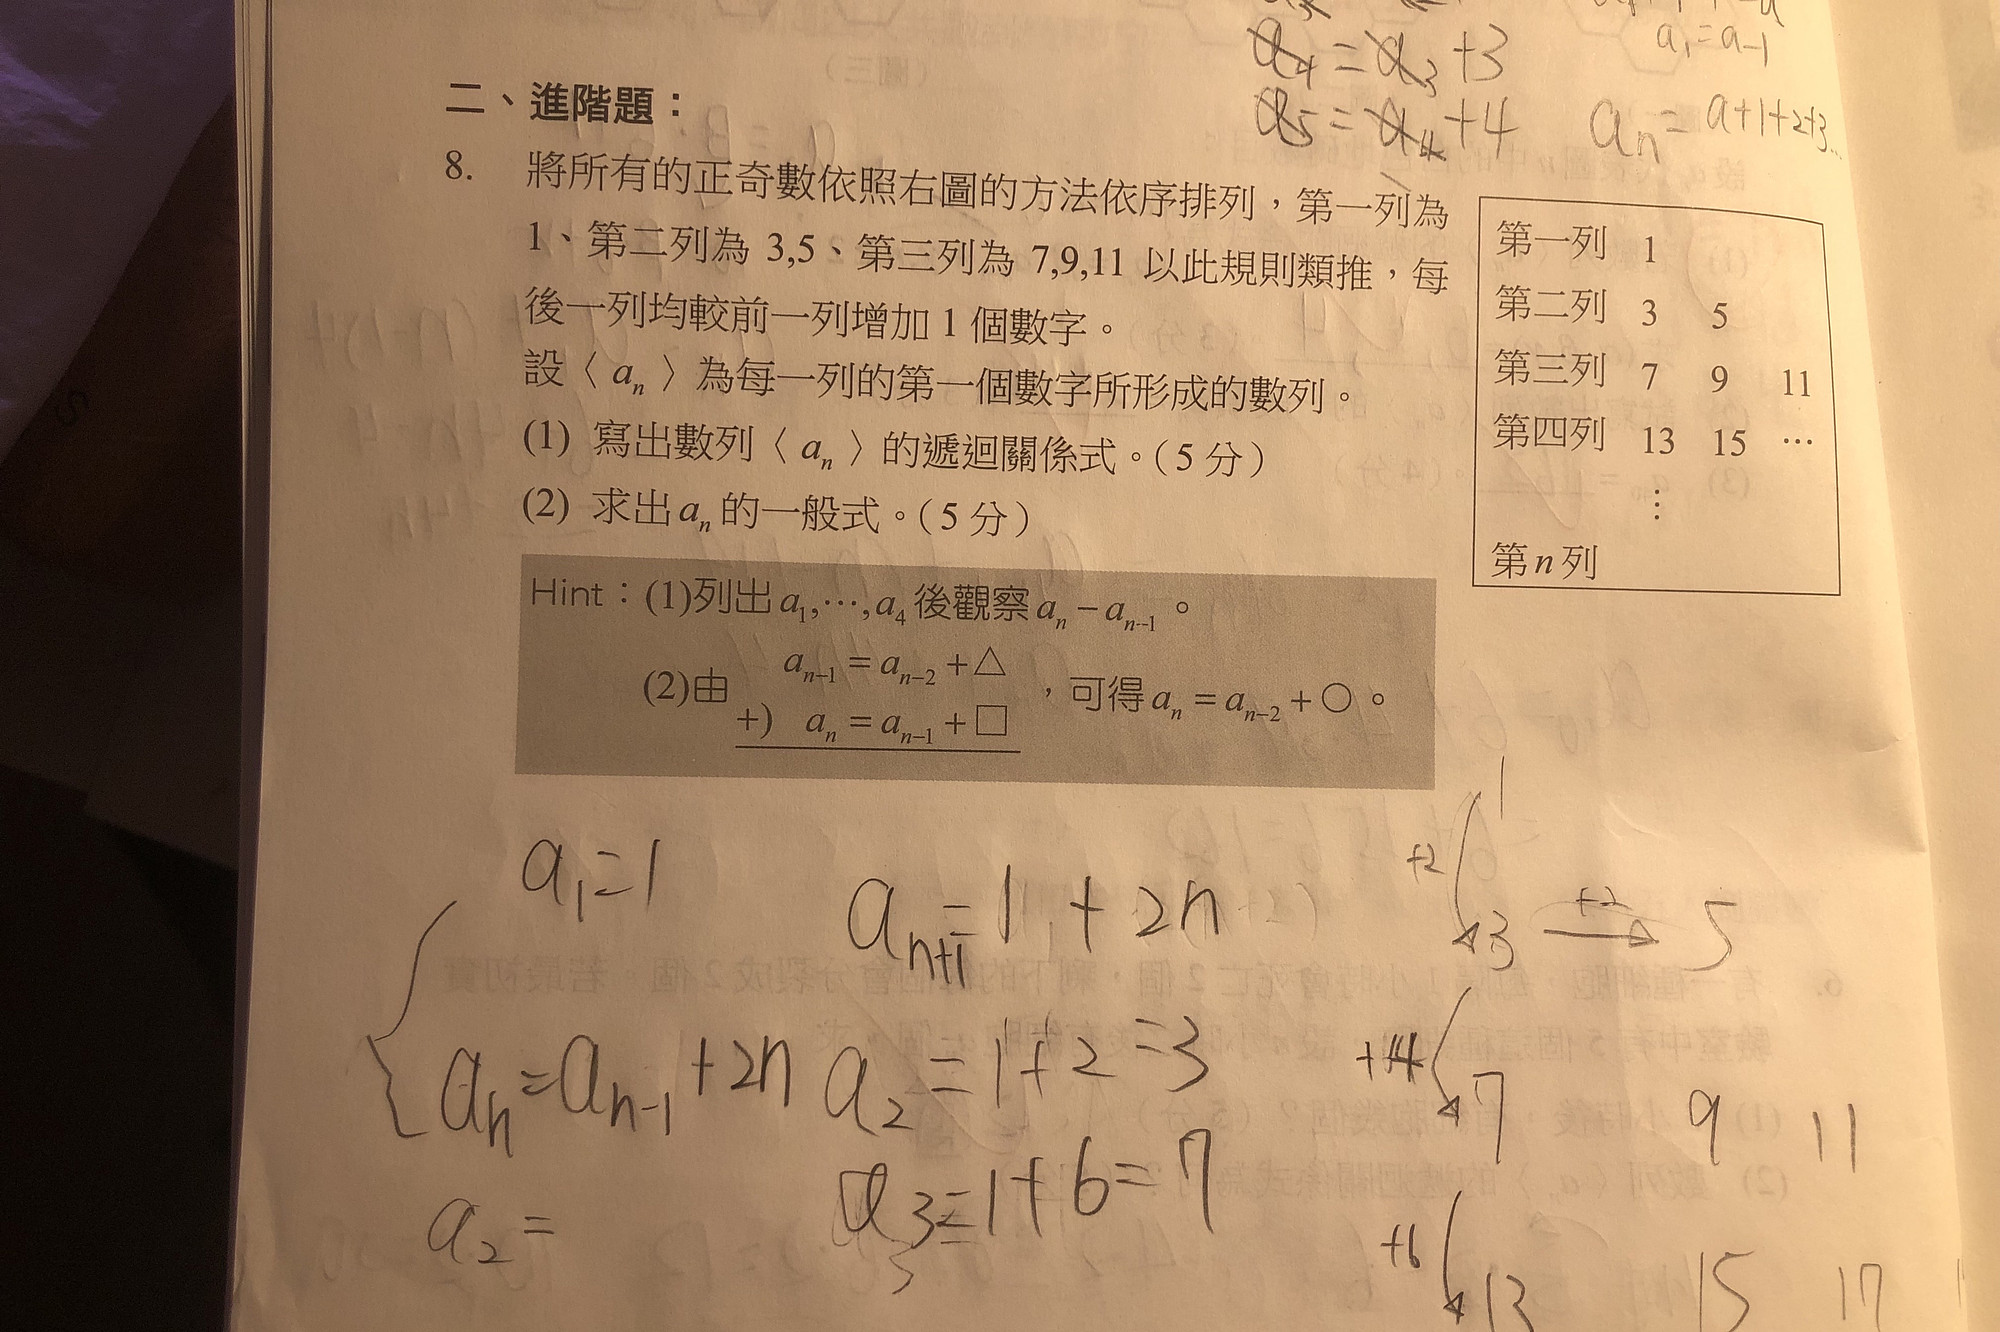 a₄ = a₃ + 3
a₁ = a-1
a₅ = a₄ + 4
aₙ = a+1+2+3...
二、進階題：
8. 將所有的正奇數依照右圖的方法依序排列，第一列為
1、第二列為 3,5、第三列為 7,9,11 以此規則類推，每
後一列均較前一列增加 1 個數字。
設〈aₙ〉為每一列的第一個數字所形成的數列。
(1) 寫出數列〈aₙ〉的遞迴關係式。（5 分）
(2) 求出 aₙ 的一般式。（5 分）
第一列 1
第二列 3 5
第三列 7 9 11
第四列 13 15 ⋯
⋮
第 n 列
Hint：(1)列出 a₁,⋯,a₄ 後觀察 aₙ − aₙ₋₁。
(2)由 aₙ₋₁ = aₙ₋₂ + △
+) aₙ = aₙ₋₁ + □ ，可得 aₙ = aₙ₋₂ + ○。
a₁ = 1
aₙ = aₙ₋₁ + 2n
a₂ =
aₙ₊₁ = 1 + 2n
a₂ = 1+2 = 3
a₃ = 1+6 = 7
1
+2
3 +2 5
+4
7 9 11
+6
13 15 17